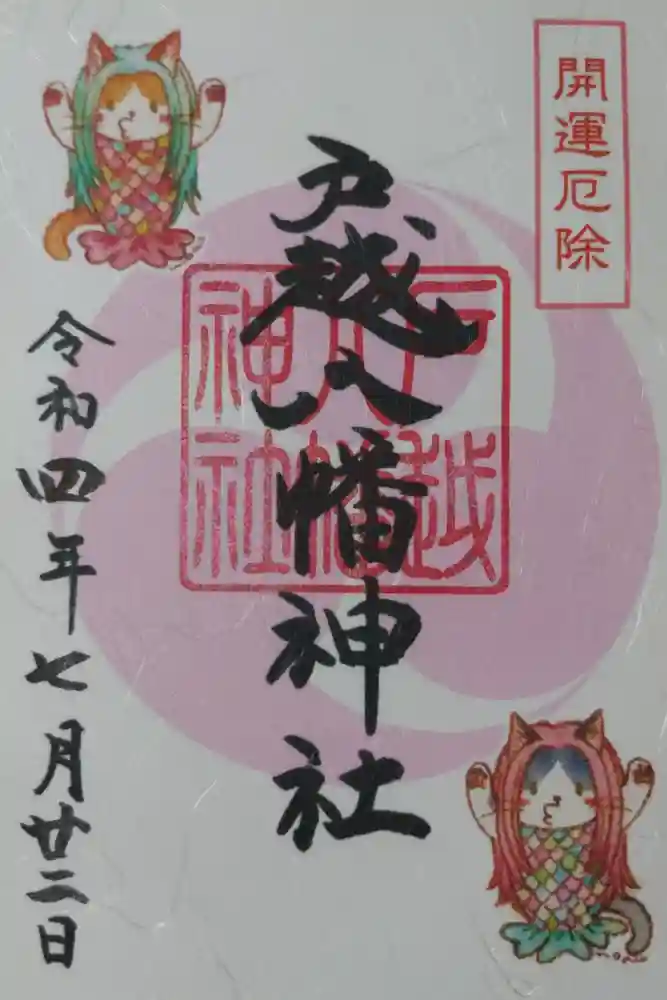 開運厄除
戸越八幡神社
戸越
八幡
神社
令和四年七月廿二日